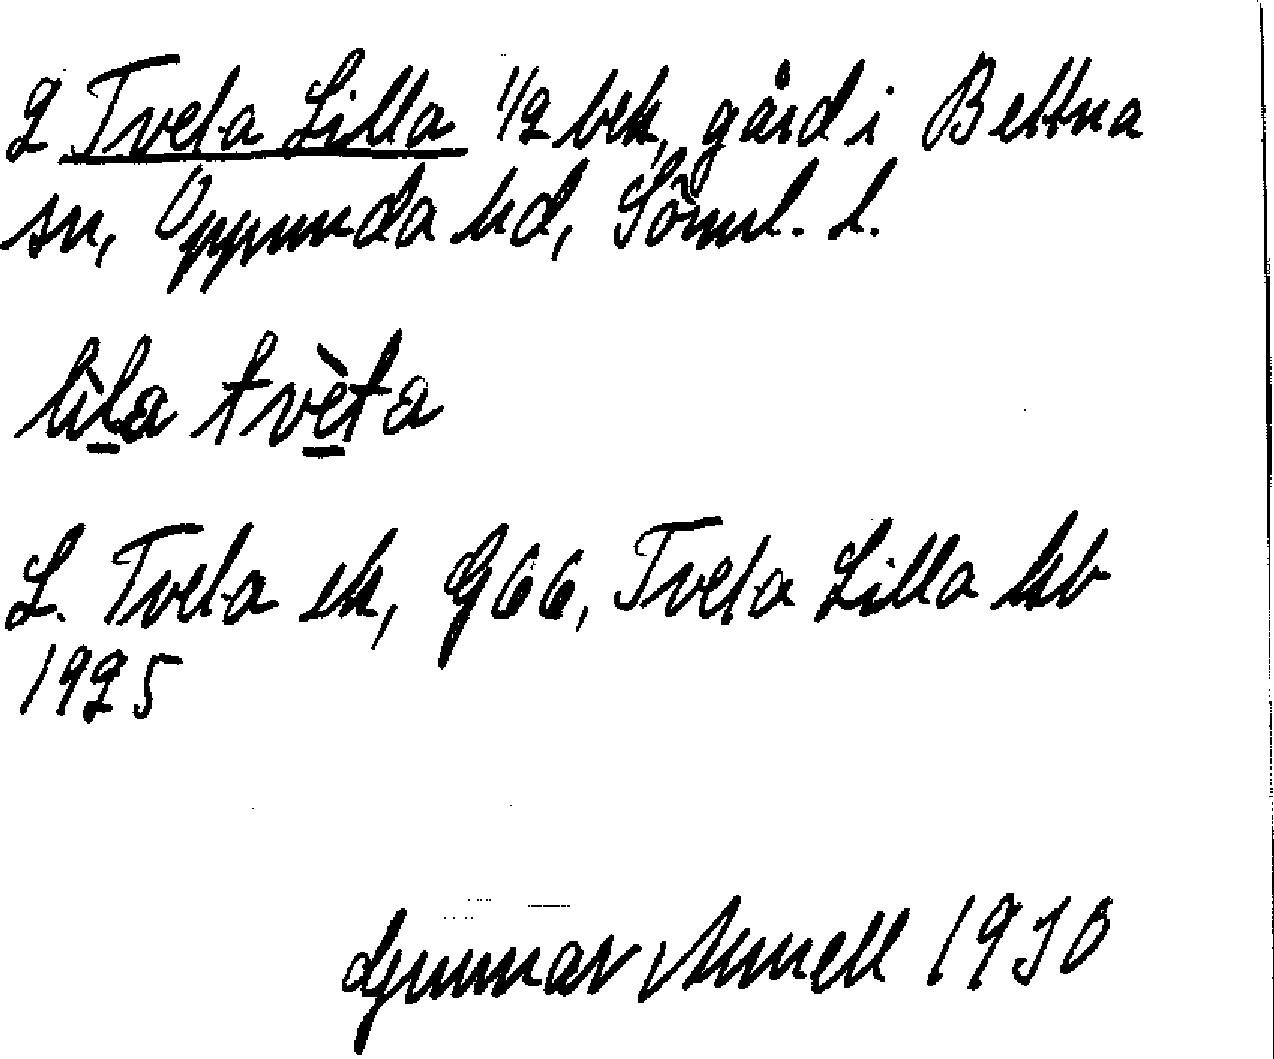 2 Tveta Lilla 1/2 bek, gård i Bettna
sn, Oppunda hd, Söml. l.
lìla tvèta
L. Tveta ek, G66, Tveta Lilla kb
1925
Gunnar Arnell 1930